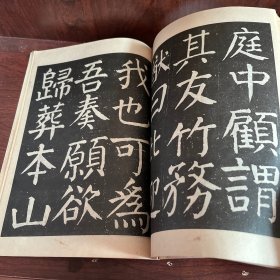 庭中顧謂
其友竹務
猷曰
我也可為
吾奏願欲
歸葬本山